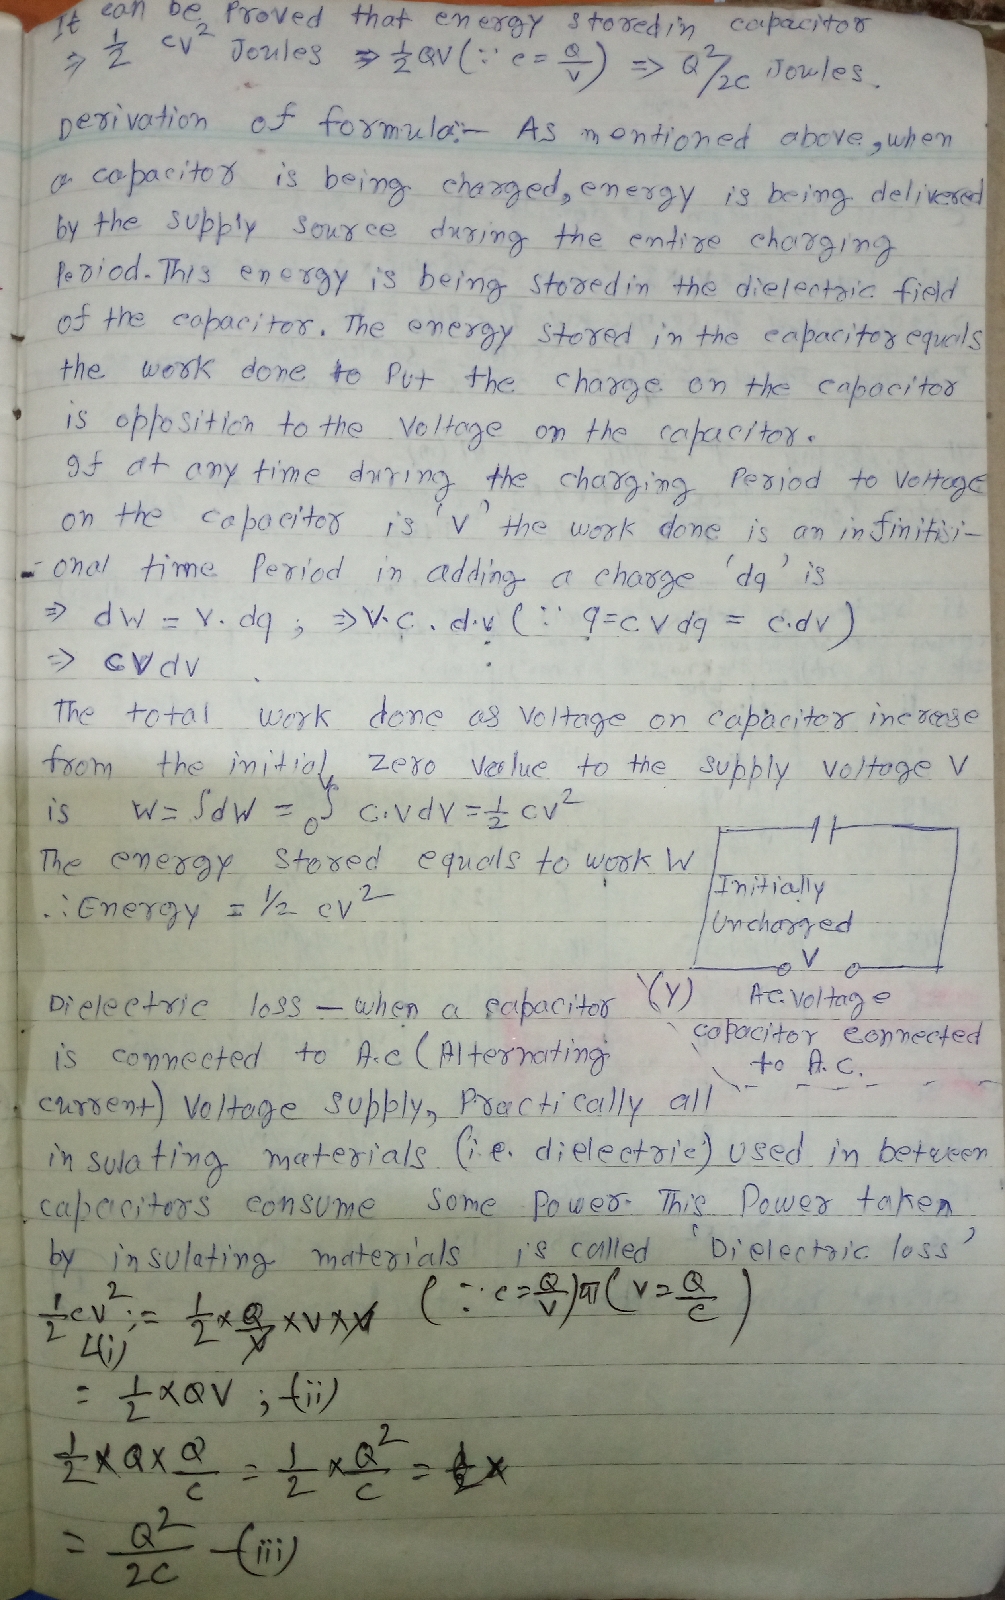 It can be Proved that energy stored in capacitor
⇒ 1/2 CV² Joules ⇒ 1/2 QV (∵ c = Q/V) ⇒ Q²/2C Joules.
Derivation of formula:- As mentioned above, when
a capacitor is being charged, energy is being delivered
by the supply source during the entire charging
Period. This energy is being stored in the dielectric field
of the capacitor. The energy stored in the capacitor equals
the work done to Put the charge on the capacitor
is opposition to the Voltage on the capacitor.
If at any time during the charging Period to Voltage
on the capacitor is 'v' the work done is an infinitisi-
-onal time Period in adding a charge 'dq' is
⇒ dW = V.dq ; ⇒ V.C.d.v (∵ q=cv dq = c.dv)
⇒ CVdv
The total work done as Voltage on capacitor increase
from the initial zero value to the supply voltage V
is W = ∫dW = ₀∫ⱽ C.VdV = 1/2 CV²
The energy stored equals to work W
∴ Energy = 1/2 CV²
Initially
Uncharged
V
(Y) A.C. Voltage
capacitor connected
to A.C.
Dielectric loss — when a capacitor
is connected to A.C (Alternating
current) Voltage supply, Practically all
insulating materials (i.e. dielectric) used in between
capacitors consume some Power. This Power taken
by insulating materials is called 'Dielectric loss'
1/2 CV² ;= 1/2 × Q/V × V × V (∵ c = Q/V) या (V = Q/C)
(i)
= 1/2 × QV ; -(ii)
1/2 × Q × Q/C = 1/2 × Q²/C =
= Q²/2C -(iii)